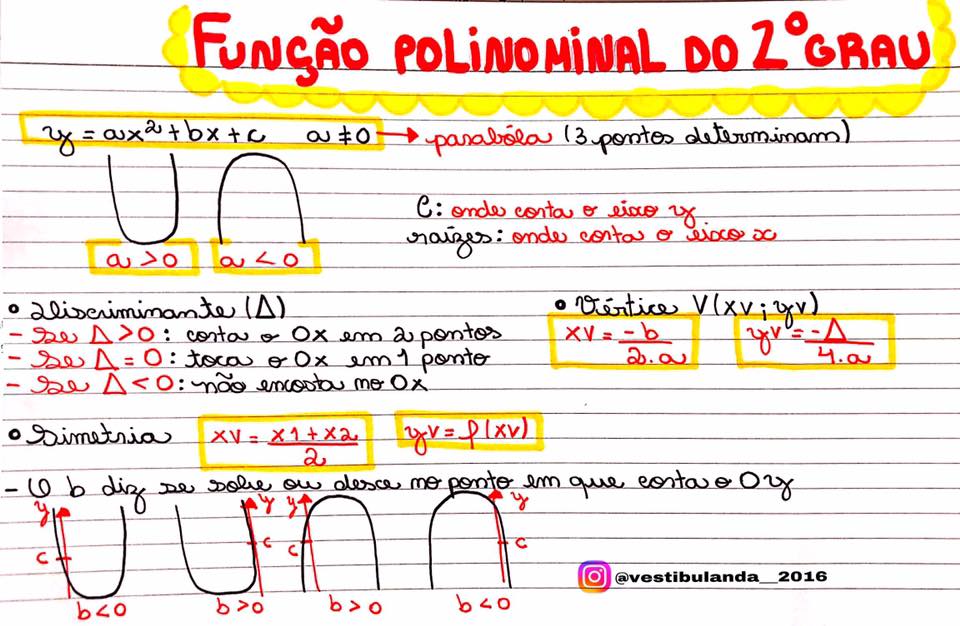 FUNÇÃO POLINOMINAL DO 2º GRAU
y = ax² + bx + c a ≠ 0 → parabóla (3 pontos determinam)
C: onde corta o eixo y
raízes: onde corta o eixo x
a > 0 a < 0
• Discriminante (Δ)
- Se Δ > 0: corta o Ox em 2 pontos
- Se Δ = 0: toca o Ox em 1 ponto
- Se Δ < 0: não encosta no Ox
• Vértice V(xv; yv)
xv = -b / 2.a yv = -Δ / 4.a
• Simetria xv = x1 + x2 / 2 yv = f(xv)
- O b diz se sobe ou desce no ponto em que corta o Oy
y y y y
c c c c
b < 0 b > 0 b > 0 b < 0
@vestibulanda_2016